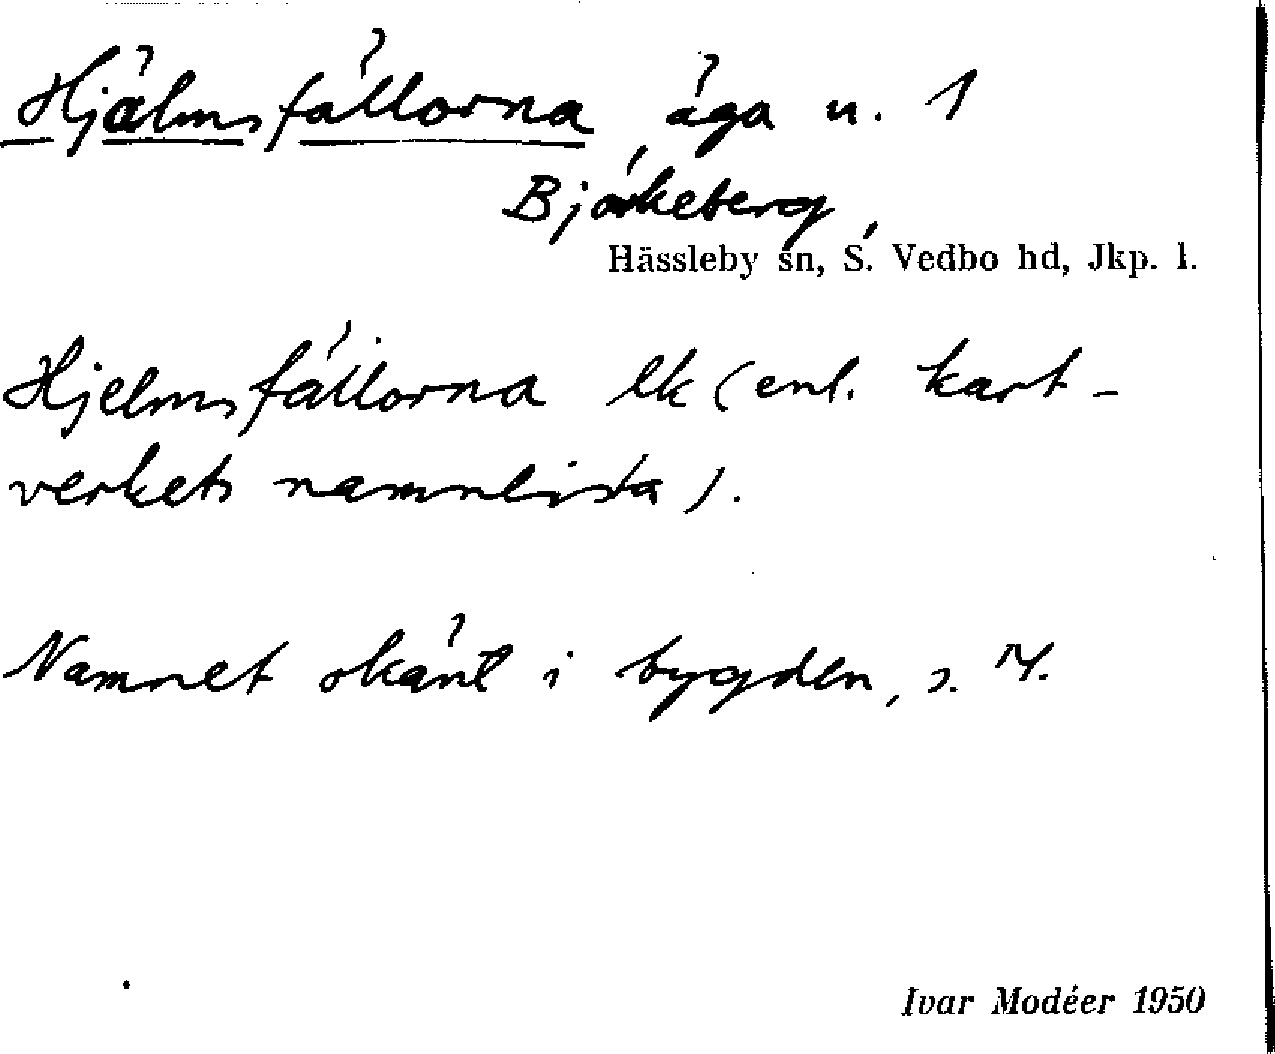 Hjälmsfällorna äga u. 1
Björkeberg,
Hässleby sn, S. Vedbo hd, Jkp. l.
Hjelmsfällorna lk (enl. kart-
verkets namnlista).
Namnet okänt i bygden, s. M.
Ivar Modéer 1950